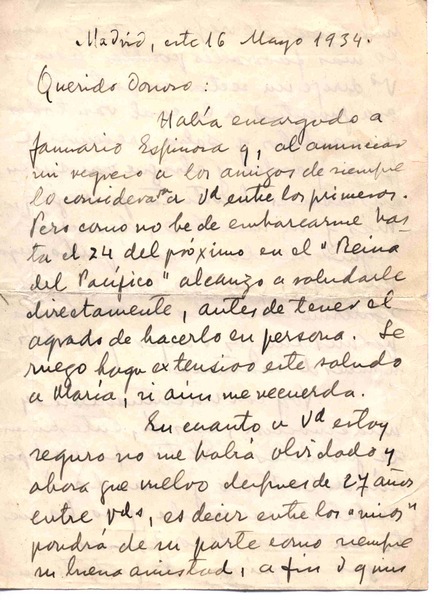 Madrid, este 16 Mayo 1934.
Querido Donoso:
Había encargado a
Januario Espinosa q, al anunciar
mi regreso a los amigos de siempre
lo considerara a Vd entre los primeros.
Pero como no he de embarcarme has
ta el 24 del próximo en el "Reina
del Pacífico" alcanzo a saludarle
directamente, antes de tener el
agrado de hacerlo en persona. Le
ruego haga extensivo este saludo
a María, si aún me recuerda.
En cuanto a Vd estoy
seguro no me habrá olvidado y
ahora que vuelvo despues de 27 años
entre Vds, es decir entre los "mios"
pondrá de su parte como siempre
su buena amistad, a fin d q mis